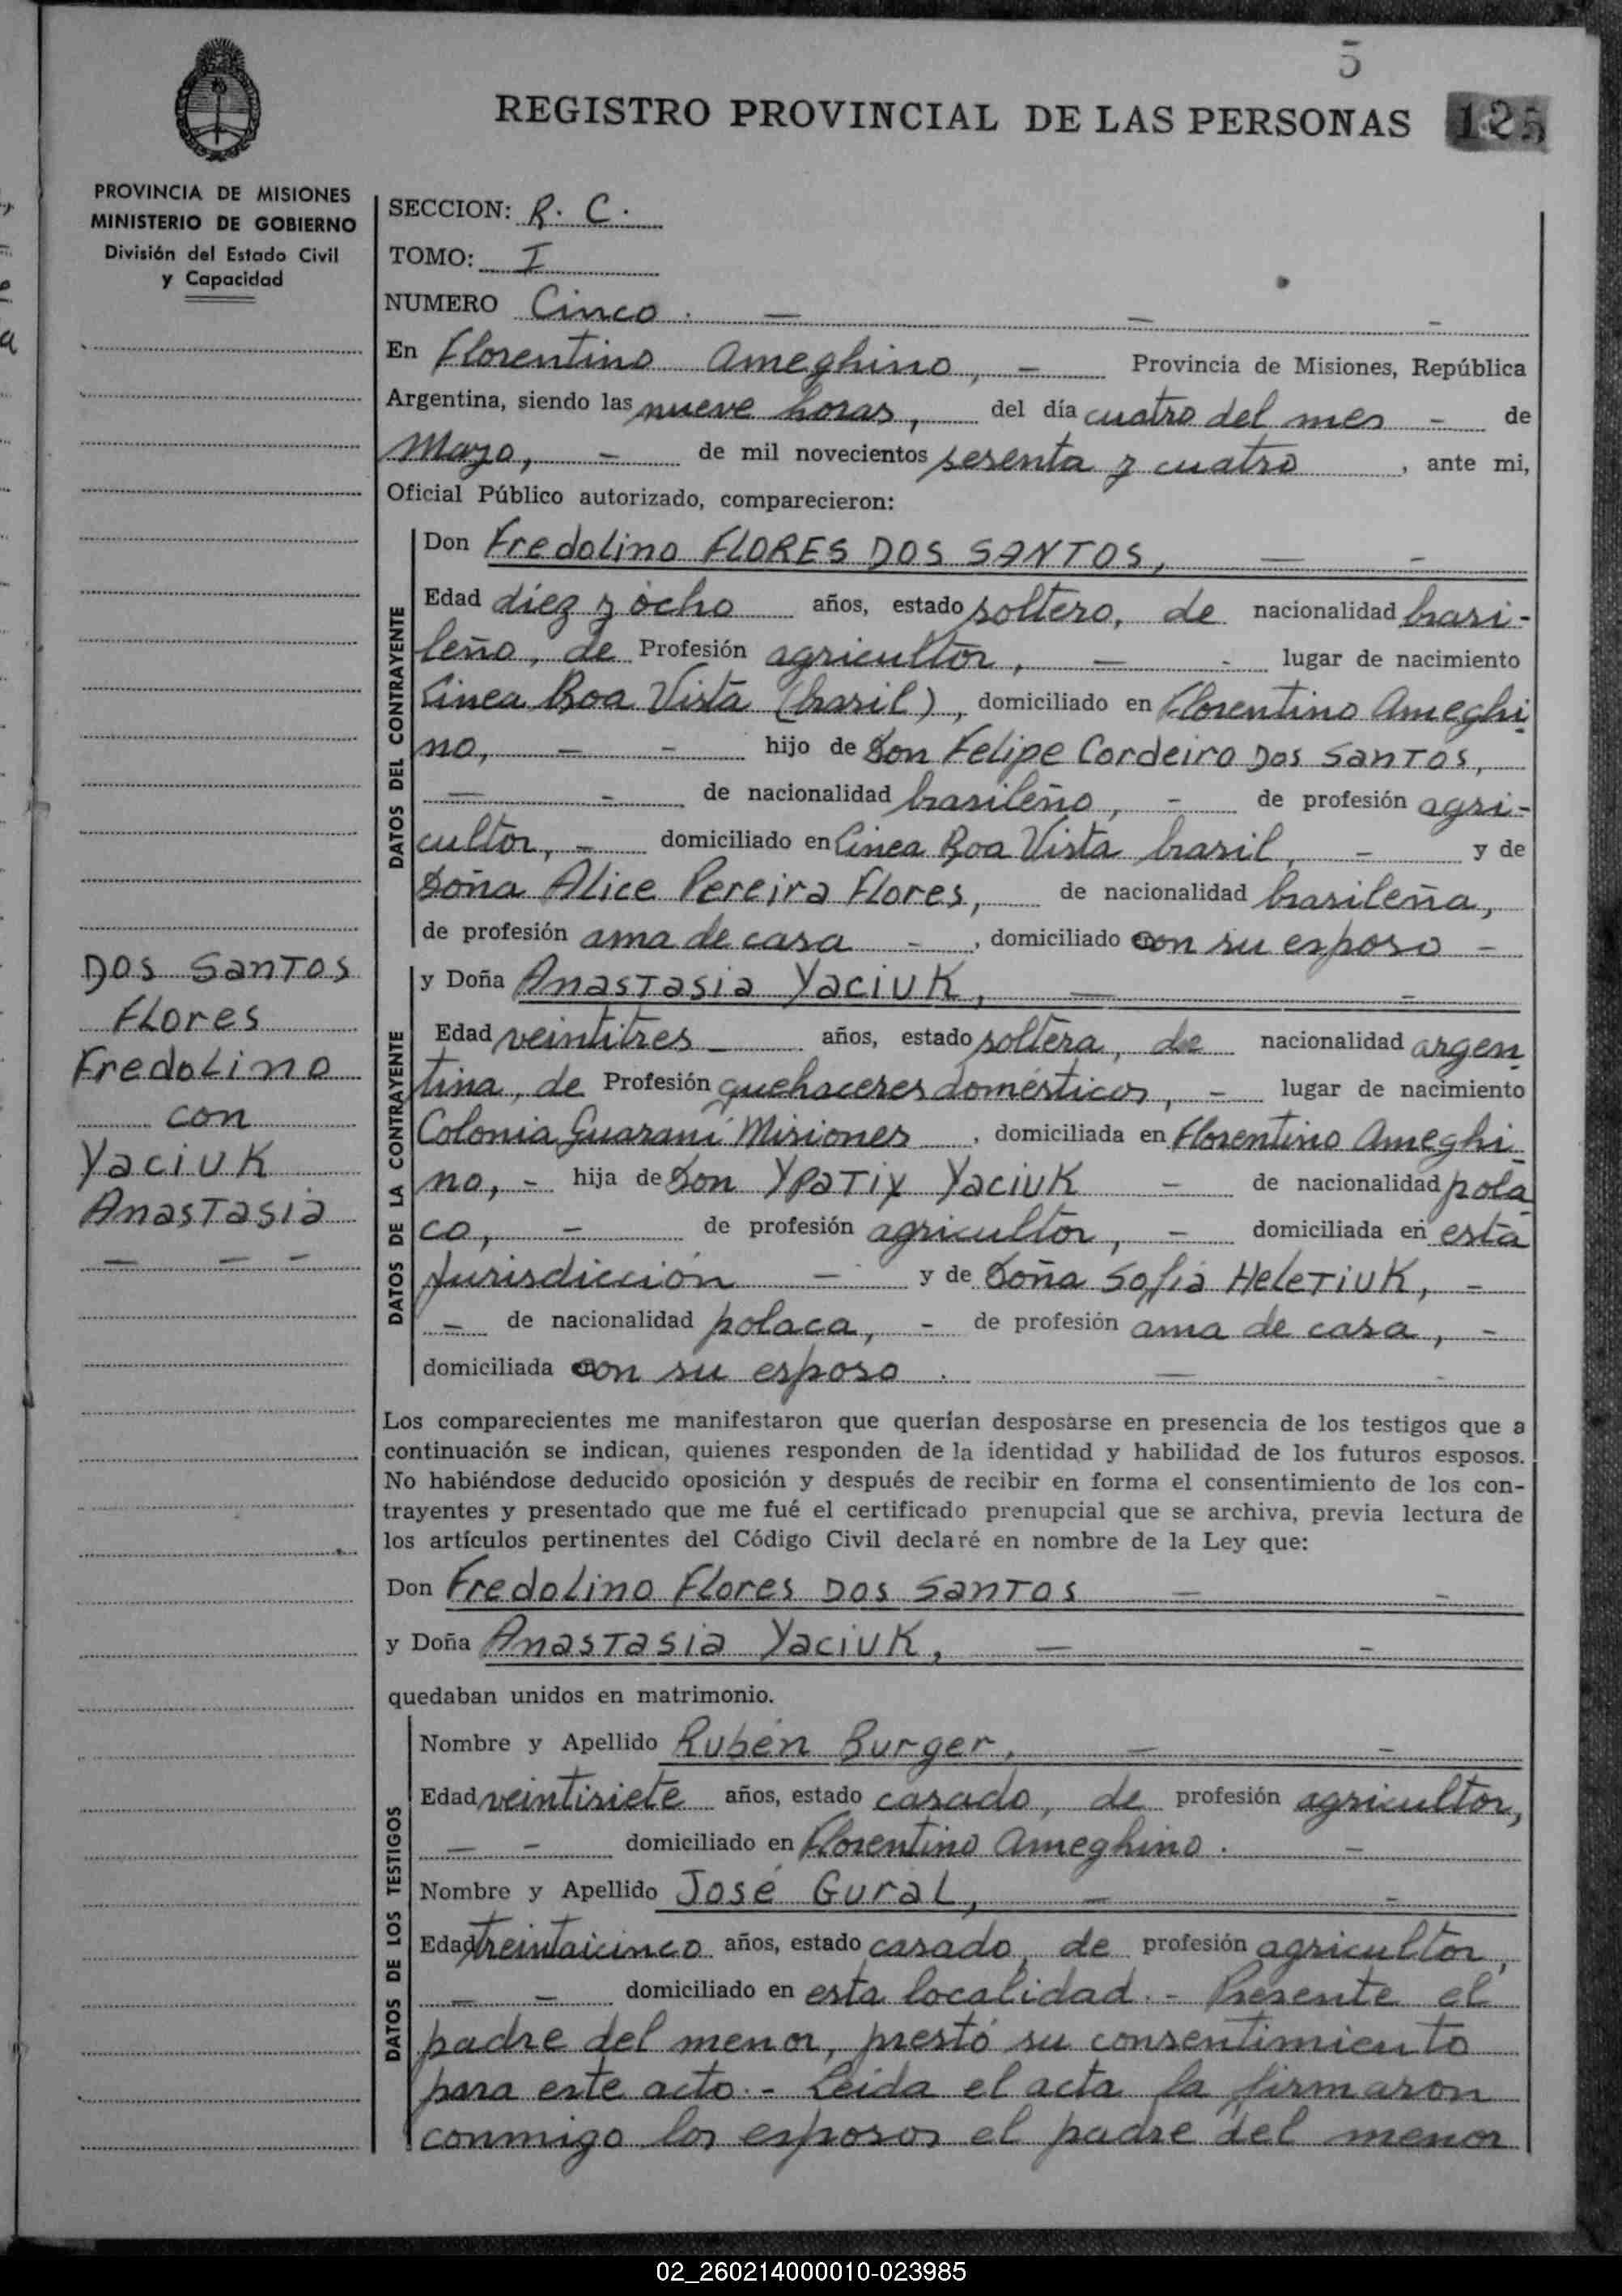 5
REGISTRO PROVINCIAL DE LAS PERSONAS 125
PROVINCIA DE MISIONES
MINISTERIO DE GOBIERNO
División del Estado Civil
y Capacidad
SECCION: R. C.
TOMO: I
NUMERO Cinco. — — -
En Florentino Ameghino, - Provincia de Misiones, República
Argentina, siendo las nueve horas, del día cuatro del mes - de
Mayo, - de mil novecientos sesenta y cuatro, ante mi,
Oficial Público autorizado, comparecieron:
DATOS DEL CONTRAYENTE
Don Fredolino FLORES DOS SANTOS, — -
Edad diez y ocho años, estado soltero, de nacionalidad brasi-
leño, de Profesión agricultor, — - lugar de nacimiento
Linea Boa Vista (brasil), domiciliado en Florentino Ameghi
no, - - hijo de Don Felipe Cordeiro Dos Santos,
— - de nacionalidad brasileño, - de profesión agri-
cultor, - domiciliado en Linea Boa Vista brasil, - y de
Doña Alice Pereira Flores, de nacionalidad brasileña,
de profesión ama de casa - , domiciliado con su esposo -
DATOS DE LA CONTRAYENTE
y Doña Anastasia Yaciuk, — -
Edad veintitres - años, estado soltera, de nacionalidad argen
tina, de Profesión quehaceres domésticos, - lugar de nacimiento
Colonia Guaraní Misiones, domiciliada en Florentino Ameghi
no, - hija de Don Ypatix Yaciuk - de nacionalidad pola
co, - de profesión agricultor, - domiciliada en esta
Jurisdicción - y de Doña Sofia Heletiuk, -
- de nacionalidad polaca, - de profesión ama de casa, -
domiciliada con su esposo. — -
Dos Santos
Flores
Fredolino
con
Yaciuk
Anastasia
— — —
Los comparecientes me manifestaron que querían desposarse en presencia de los testigos que a
continuación se indican, quienes responden de la identidad y habilidad de los futuros esposos.
No habiéndose deducido oposición y después de recibir en forma el consentimiento de los con-
trayentes y presentado que me fué el certificado prenupcial que se archiva, previa lectura de
los artículos pertinentes del Código Civil declaré en nombre de la Ley que:
Don Fredolino Flores Dos Santos — -
y Doña Anastasia Yaciuk, — -
quedaban unidos en matrimonio.
DATOS DE LOS TESTIGOS
Nombre y Apellido Rubén Burger, — -
Edad veintisiete años, estado casado, de profesión agricultor,
- - domiciliado en Florentino Ameghino. -
Nombre y Apellido José Gural, — -
Edad treintaicinco años, estado casado, de profesión agricultor,
- - domiciliado en esta localidad. - Presente el
padre del menor, prestó su consentimiento
para este acto. - Leida el acta la firmaron
conmigo los esposos el padre del menor
02_260214000010-023985